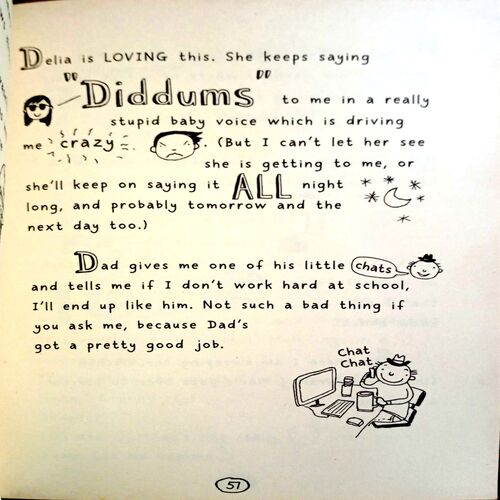 Delia is LOVING this. She keeps saying
"Diddums" to me in a really
stupid baby voice which is driving
me crazy. (But I can't let her see
she is getting to me, or
she'll keep on saying it ALL night
long, and probably tomorrow and the
next day too.)
Dad gives me one of his little chats
and tells me if I don't work hard at school,
I'll end up like him. Not such a bad thing if
you ask me, because Dad's
got a pretty good job.
Chat
Chat
57